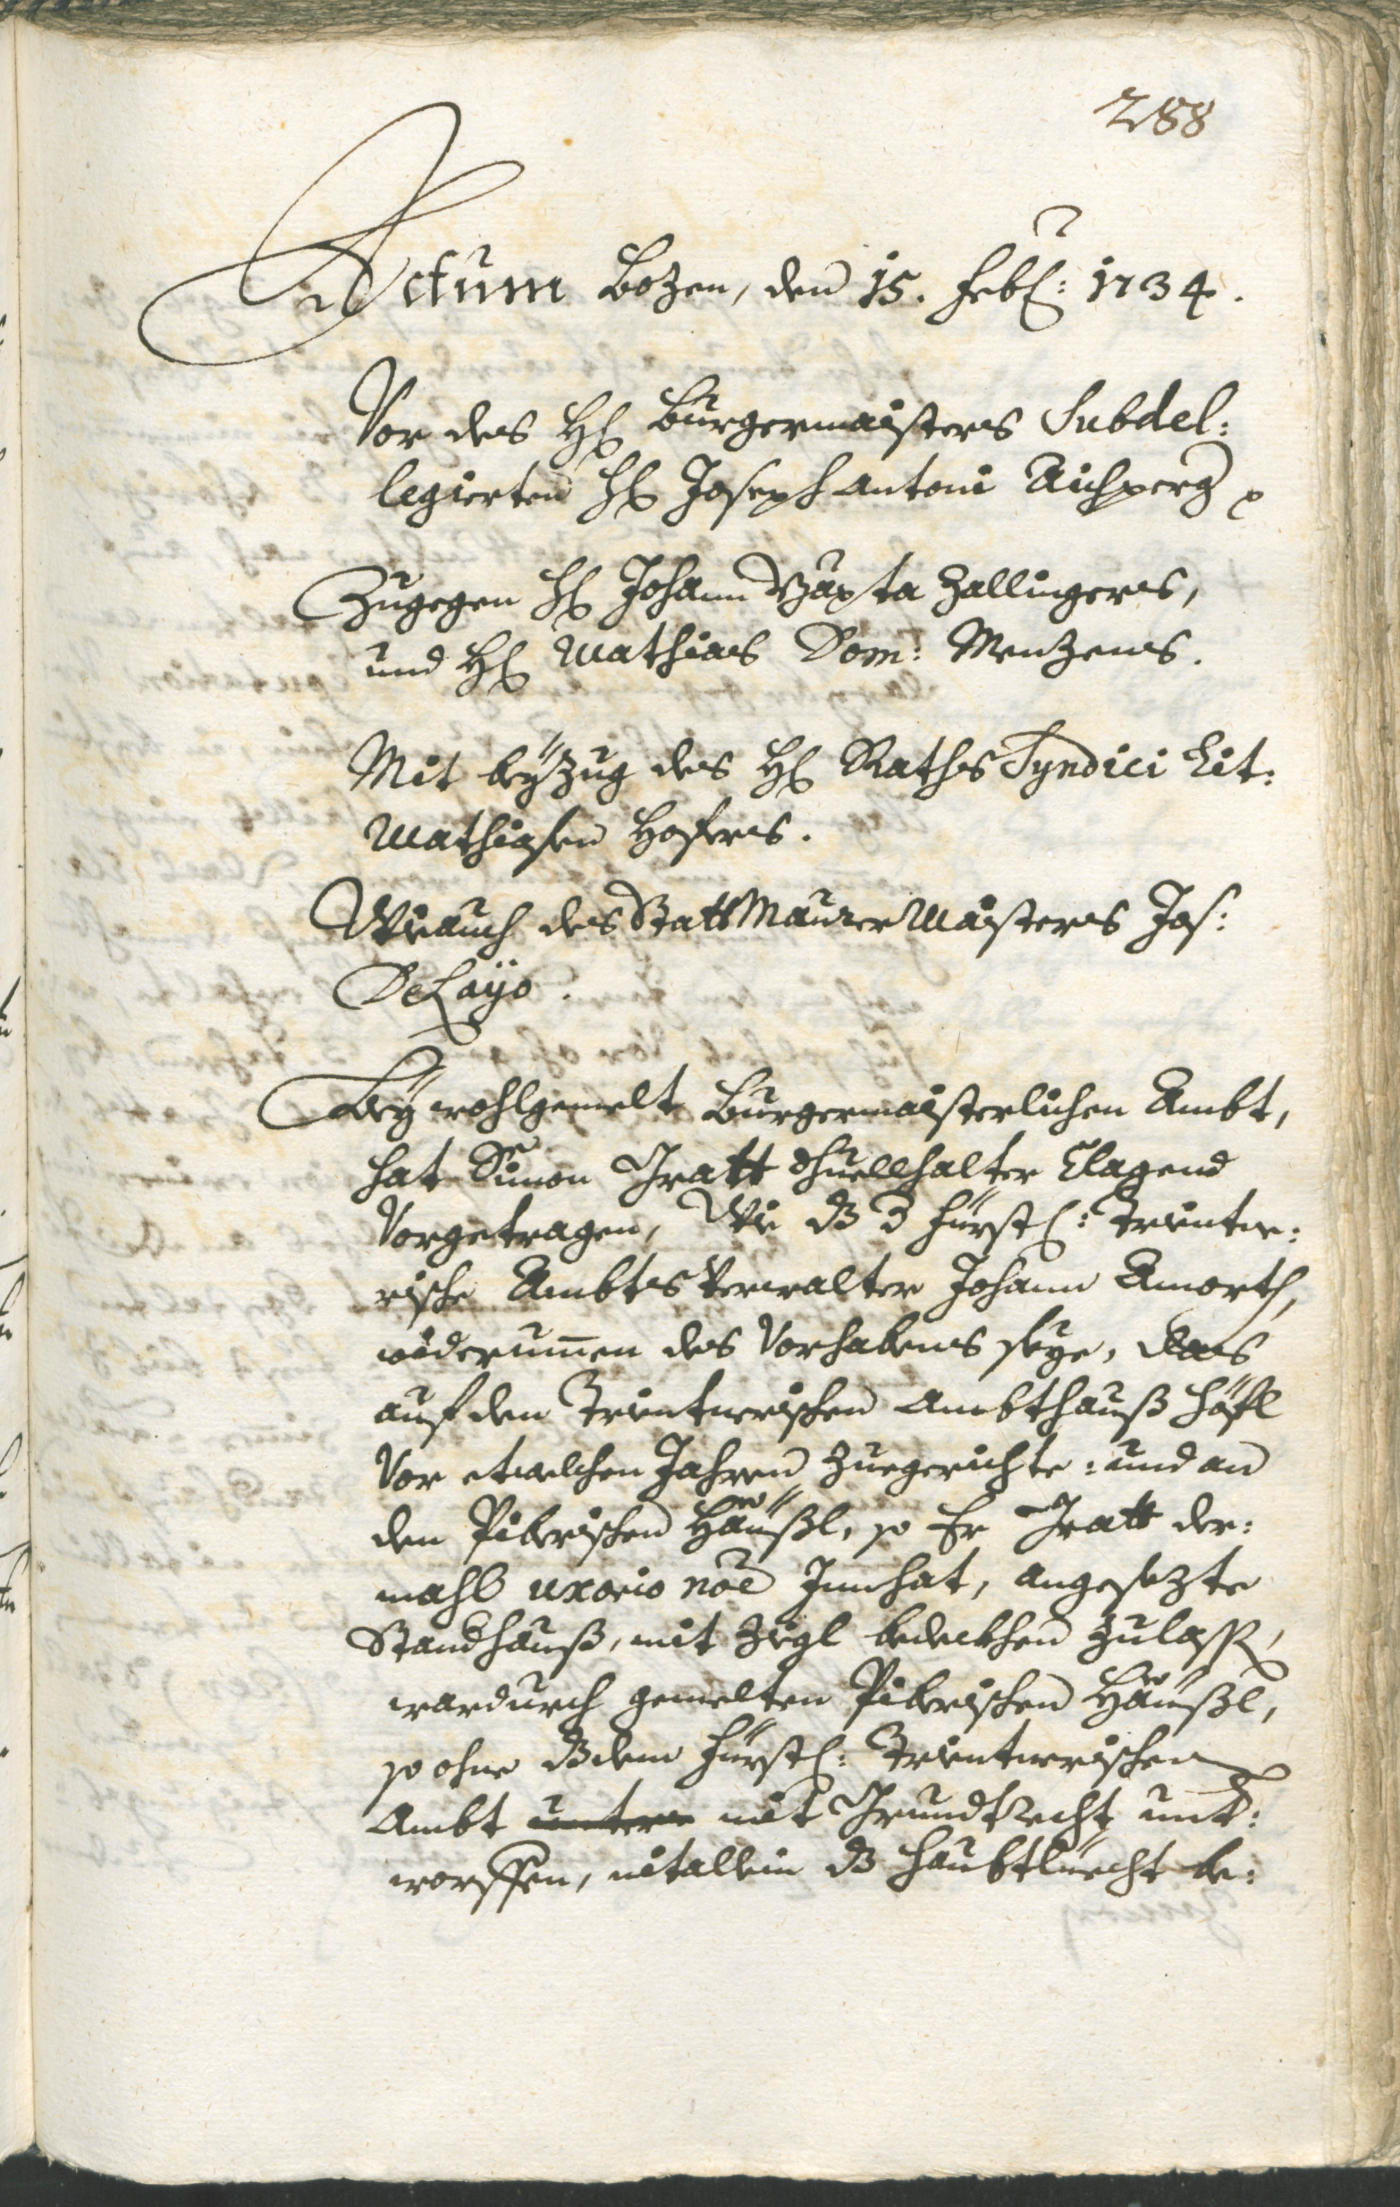 288
Actum Bozen, den 15. Feb: 1734.
Vor des H: Burgermaisters Subdel:
legierten H: Joseph Antoni Aichperg
Zugegen H: Johann Bapta Zallingers,
und H: Mathias Dom: Menzens.
Mit beyzug des H: Raths Syndici Lit:
Mathiasen Hofers.
Wie auch des Statt Maurer Maisters Jos:
Delayo.
Bey wohlgemelt Burgermaisterlichen Ambt,
hat Simon Gratt clagend
Vorgetragen, Wie dz d Fürstl: Trientne:
rische Ambts Verwalter Johann Amorth,
widerummen des Vorhabens seye, das
auf den Trientnerischen Ambthauß Höfl
Vor etwelchen Jahren zuegerichte: und an
den Piberischen Häußl, so Er Gratt der:
mahls uxorio noe Innhat, angesezte
Standhauß, mit Zigl bedeckhen zulassen,
wardurch gemelten Piberischen Häußl,
so ohne dz dem Fürstl: Trientnerischen
Ambt untere mit Grundtrecht unt:
worffen, nit allein dz Haubtliecht be: